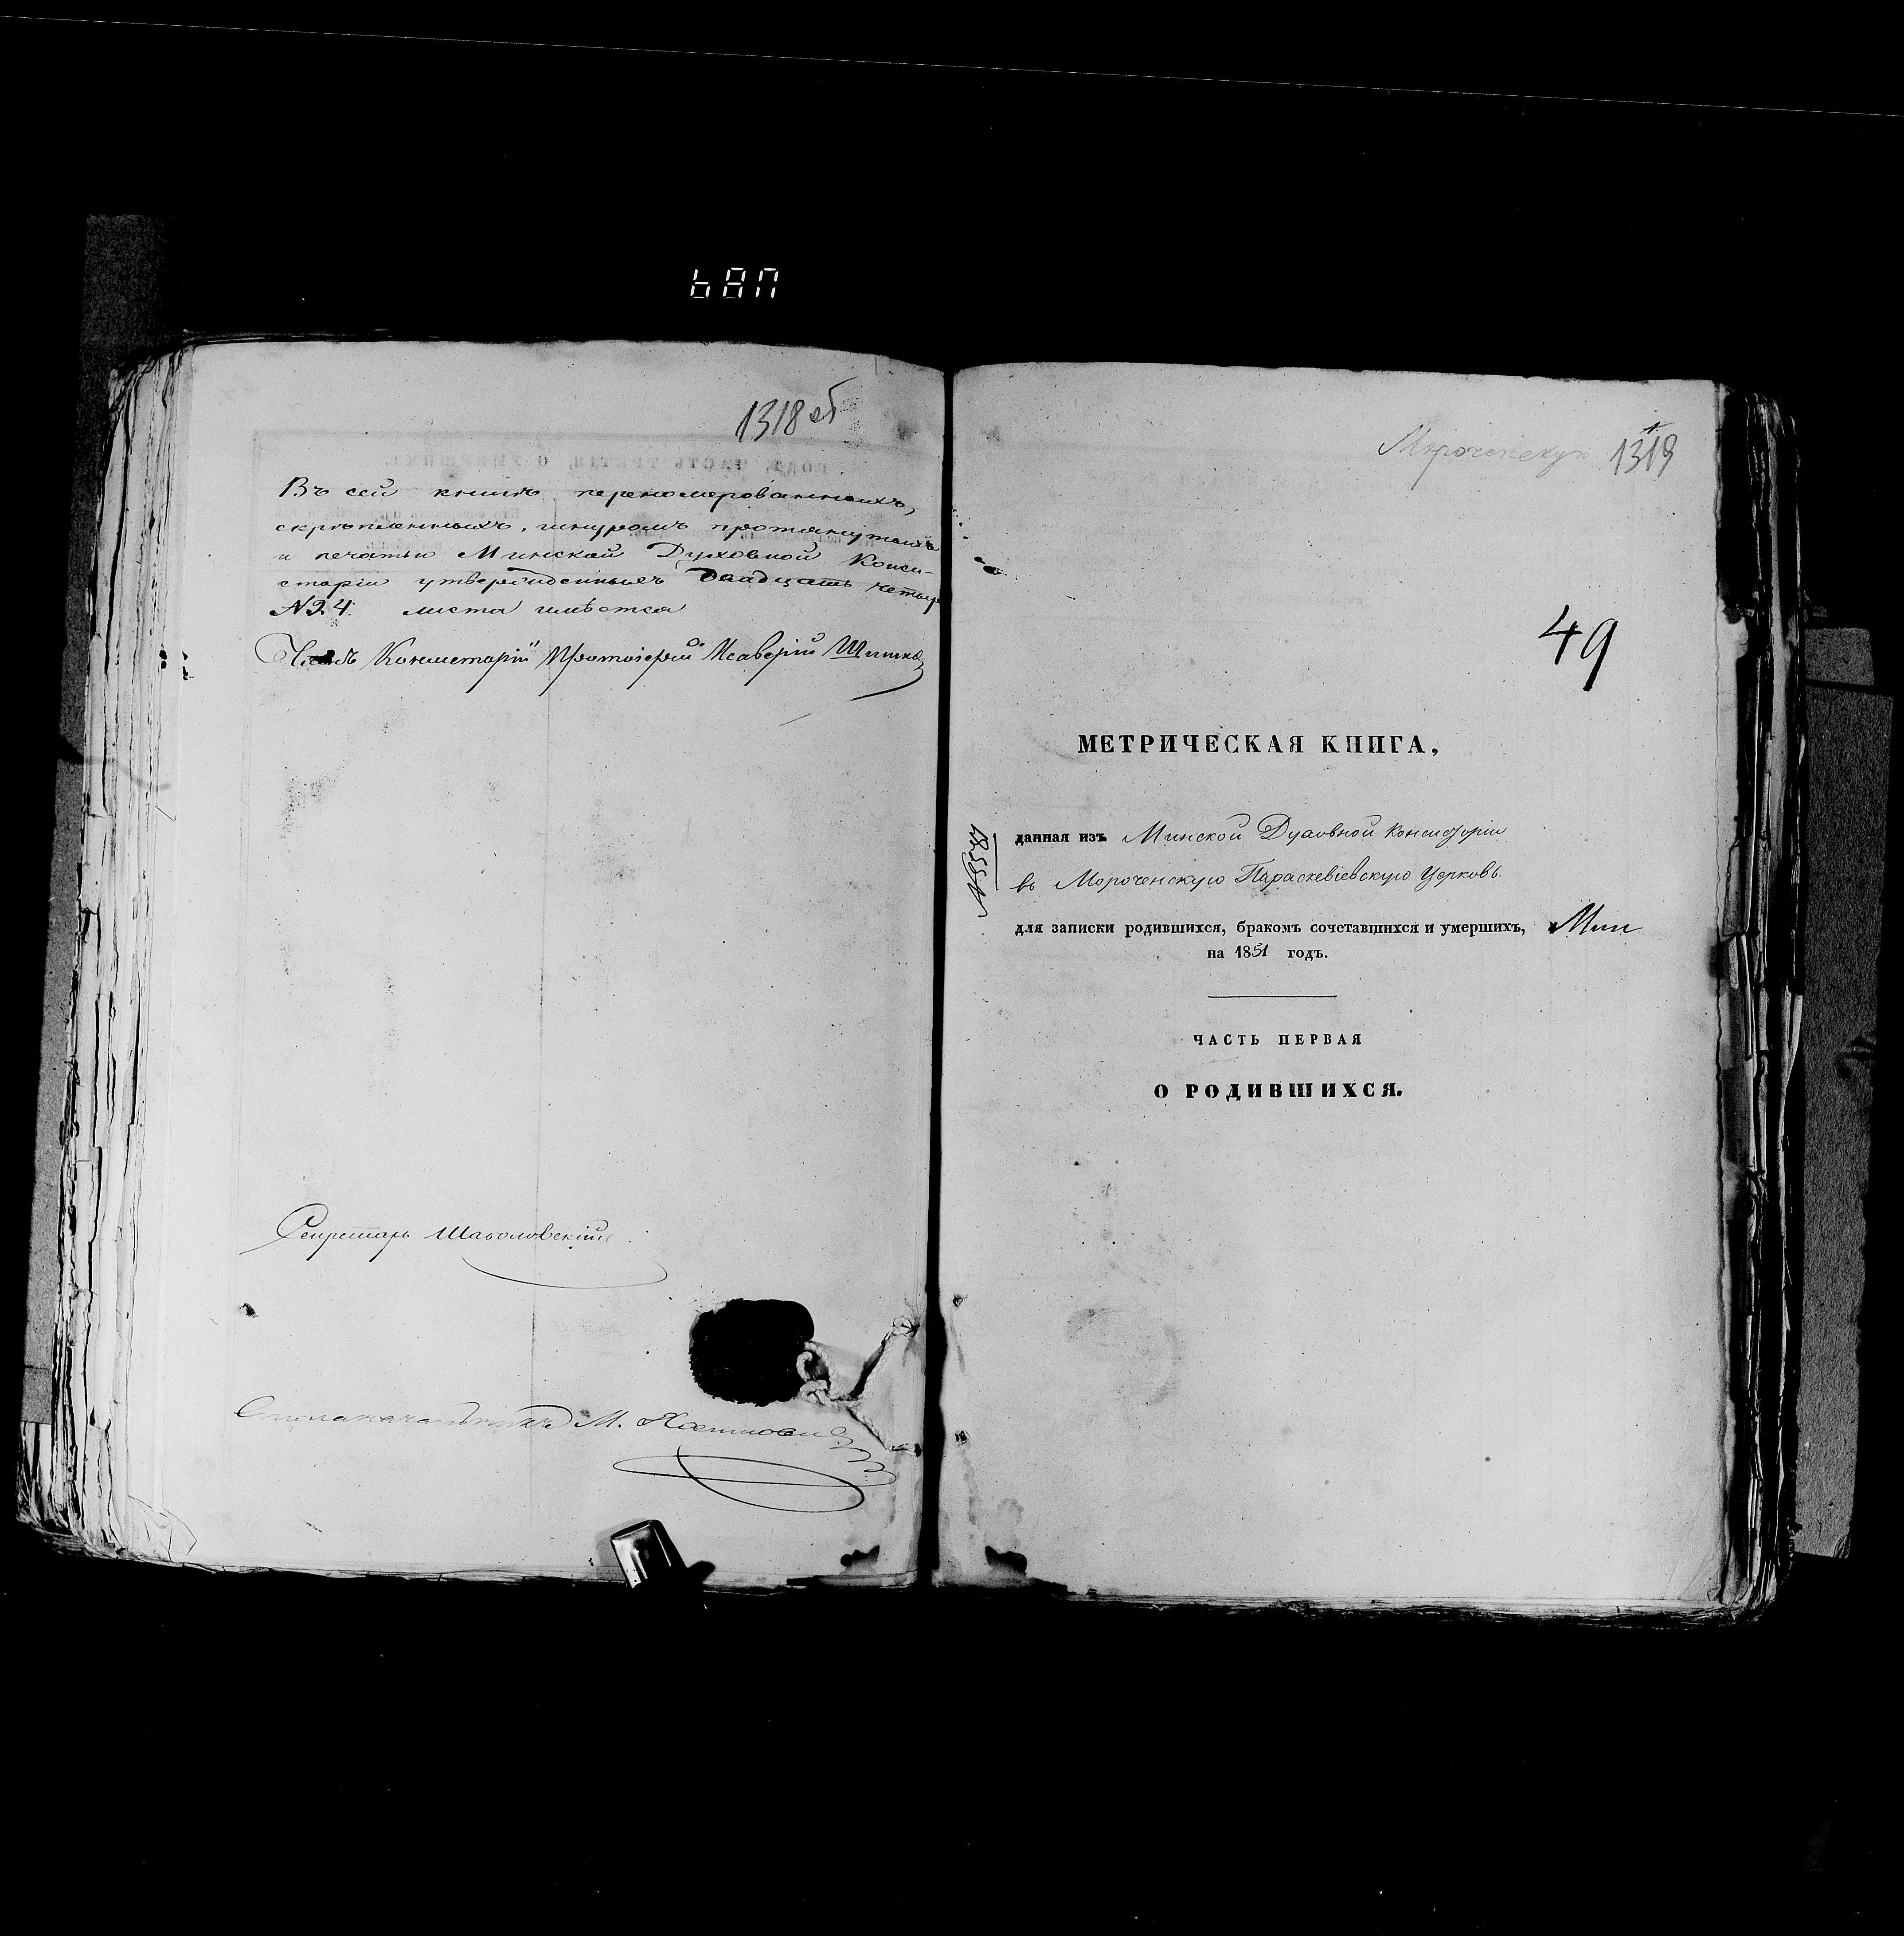 1318 об
Въ сей книгѣ перенумерованныхъ,
скрѣпленныхъ, шнуромъ протянутыхъ
и печатью Минской Духовной Конси-
сторіи утвержденныхъ двадцать четыре
№ 24 листа имѣется
Членъ Консисторіи Протоіерей
Секретарь
Столоначальникъ М.
Мороченскую 1319
49
МЕТРИЧЕСКАЯ КНИГА,
данная изъ Минской Духовной Консисторіи
въ Мороченскую Параскевіевскую Церковь
для записки родившихся, бракомъ сочетавшихся и умершихъ, Мин
на 1851 годъ.
ЧАСТЬ ПЕРВАЯ
О РОДИВШИХСЯ.